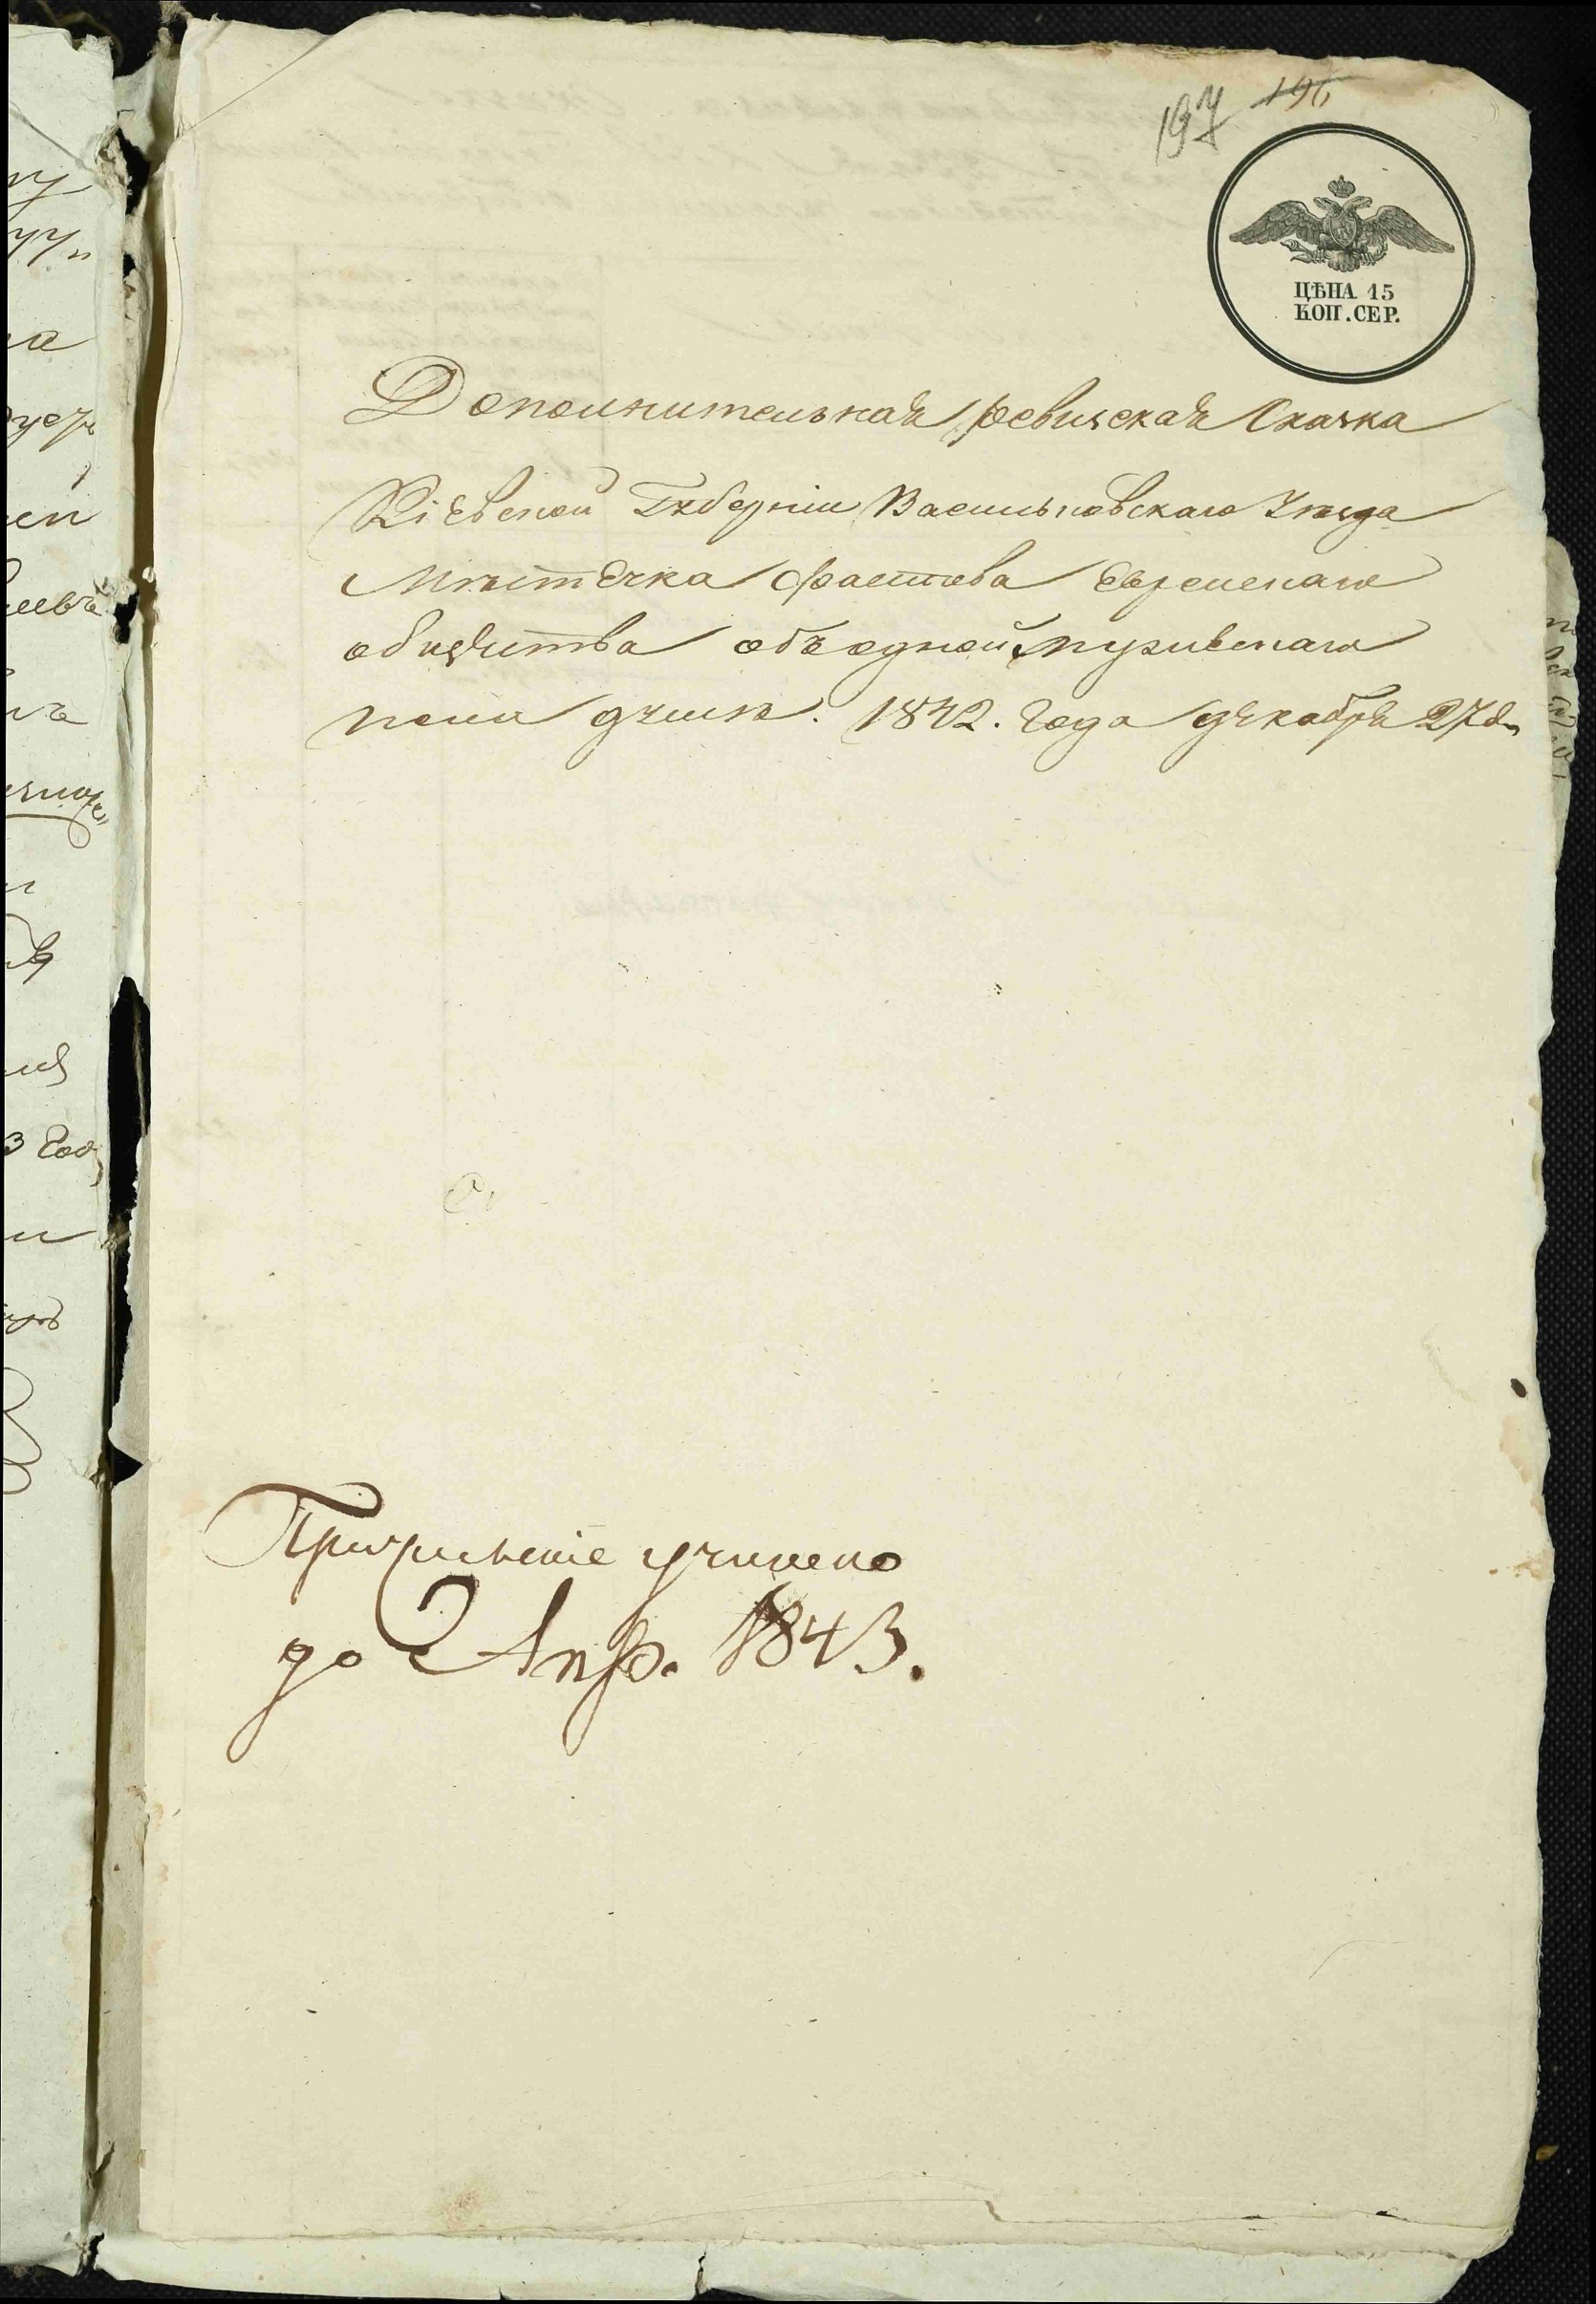 197 196
ЦѢНА 15
КОП. СЕР.
Дополнительная ревизская Сказка
Кіевской Губерніи Васильковскаго Уезда
Мѣстечка Фастова Еврейскаго
общества объ одной мужескаго
пола душѣ. 1842. Года декабря 27 д.
Причисленіе учинено
до 2 Апр. 1843.